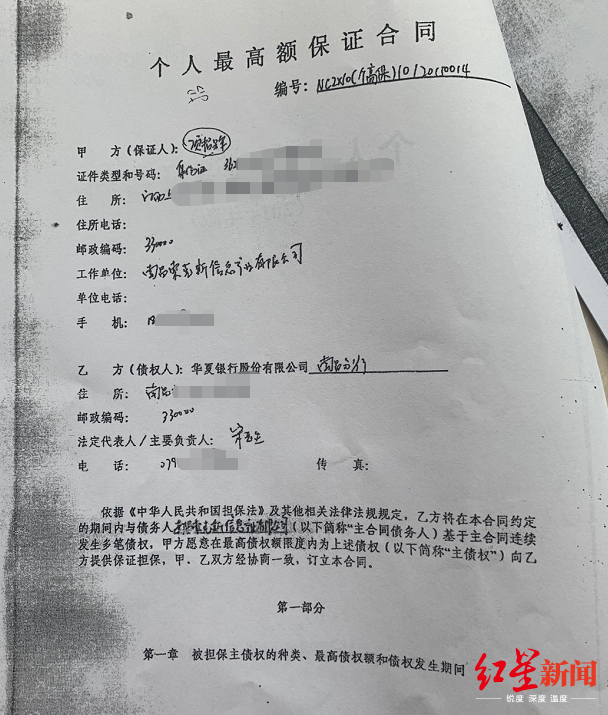 个人最高额保证合同
编号：NC2X10(个高保)10120110014
甲　方（保证人）：
证件类型和号码：身份证 362
住　所：江西
住所电话：
邮政编码：330000
工作单位：南昌 信息 有限公司
单位电话：
手　机：1
乙　方（债权人）：华夏银行股份有限公司南昌分行
住　所：南昌
邮政编码：330000
法定代表人/主要负责人：宋
电　话：079　传　真：
依据《中华人民共和国担保法》及其他相关法律法规规定，乙方将在本合同约定
的期间内与债务人 新信息 有限公司（以下简称“主合同债务人）基于主合同连续
发生多笔债权，甲方愿意在最高债权额限度内为上述债权（以下简称“主债权”）向乙
方提供保证担保，甲、乙双方经协商一致，订立本合同。
第一部分
第一章　被担保主债权的种类、最高债权额和债权发生期间
红星新闻
锐度 深度 温度